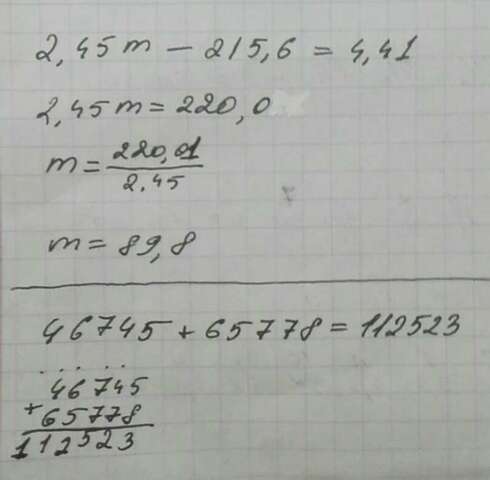 2,45m - 215,6 = 4,41
2,45m = 220,0
m = 220,01 / 2.45
m = 89,8
46745 + 65778 = 112523
.....
46745
+ 65778
112523